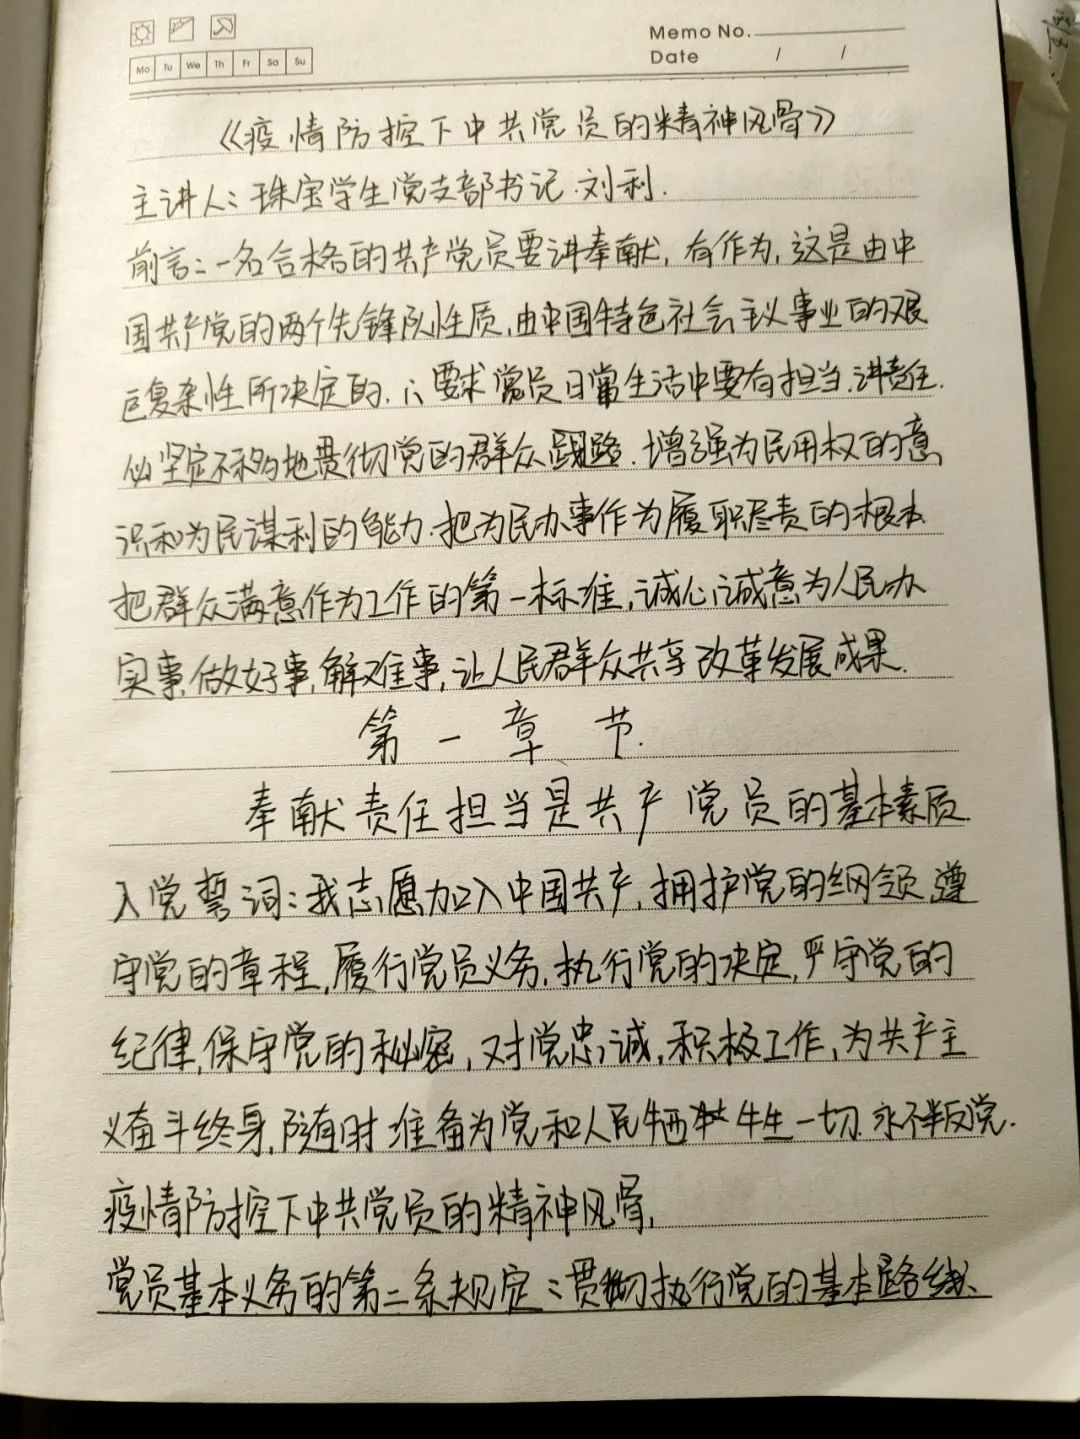 Memo No.
Date / /
Mo Tu We Th Fr Sa Su
《疫情防控下中共党员的精神风骨》
主讲人:珠宝学生党支部书记.刘利.
前言:一名合格的共产党员要讲奉献,有作为,这是由中
国共产党的两个先锋队性质,由中国特色社会主义事业的艰
巨复杂性所决定的.要求党员日常生活中要有担当.讲责任.
必坚定不移地贯彻党的群众路.增强为民用权的意
识和为民谋利的能力.把为民办事作为履职尽责的根本
把群众满意作为工作的第一标准,诚心诚意为人民办
实事,做好事,解难事,让人民群众共享改革发展成果.
第一章节.
奉献责任担当是共产党员的基本素质.
入党誓词:我志愿加入中国共产,拥护党的纲领,遵
守党的章程,履行党员义务,执行党的决定,严守党的
纪律,保守党的秘密,对党忠诚,积极工作,为共产主
义奋斗终身,随时准备为党和人民牺牲一切.永不叛党.
疫情防控下中共党员的精神风骨,
党员基本义务的第二条规定:贯彻执行党的基本路线、